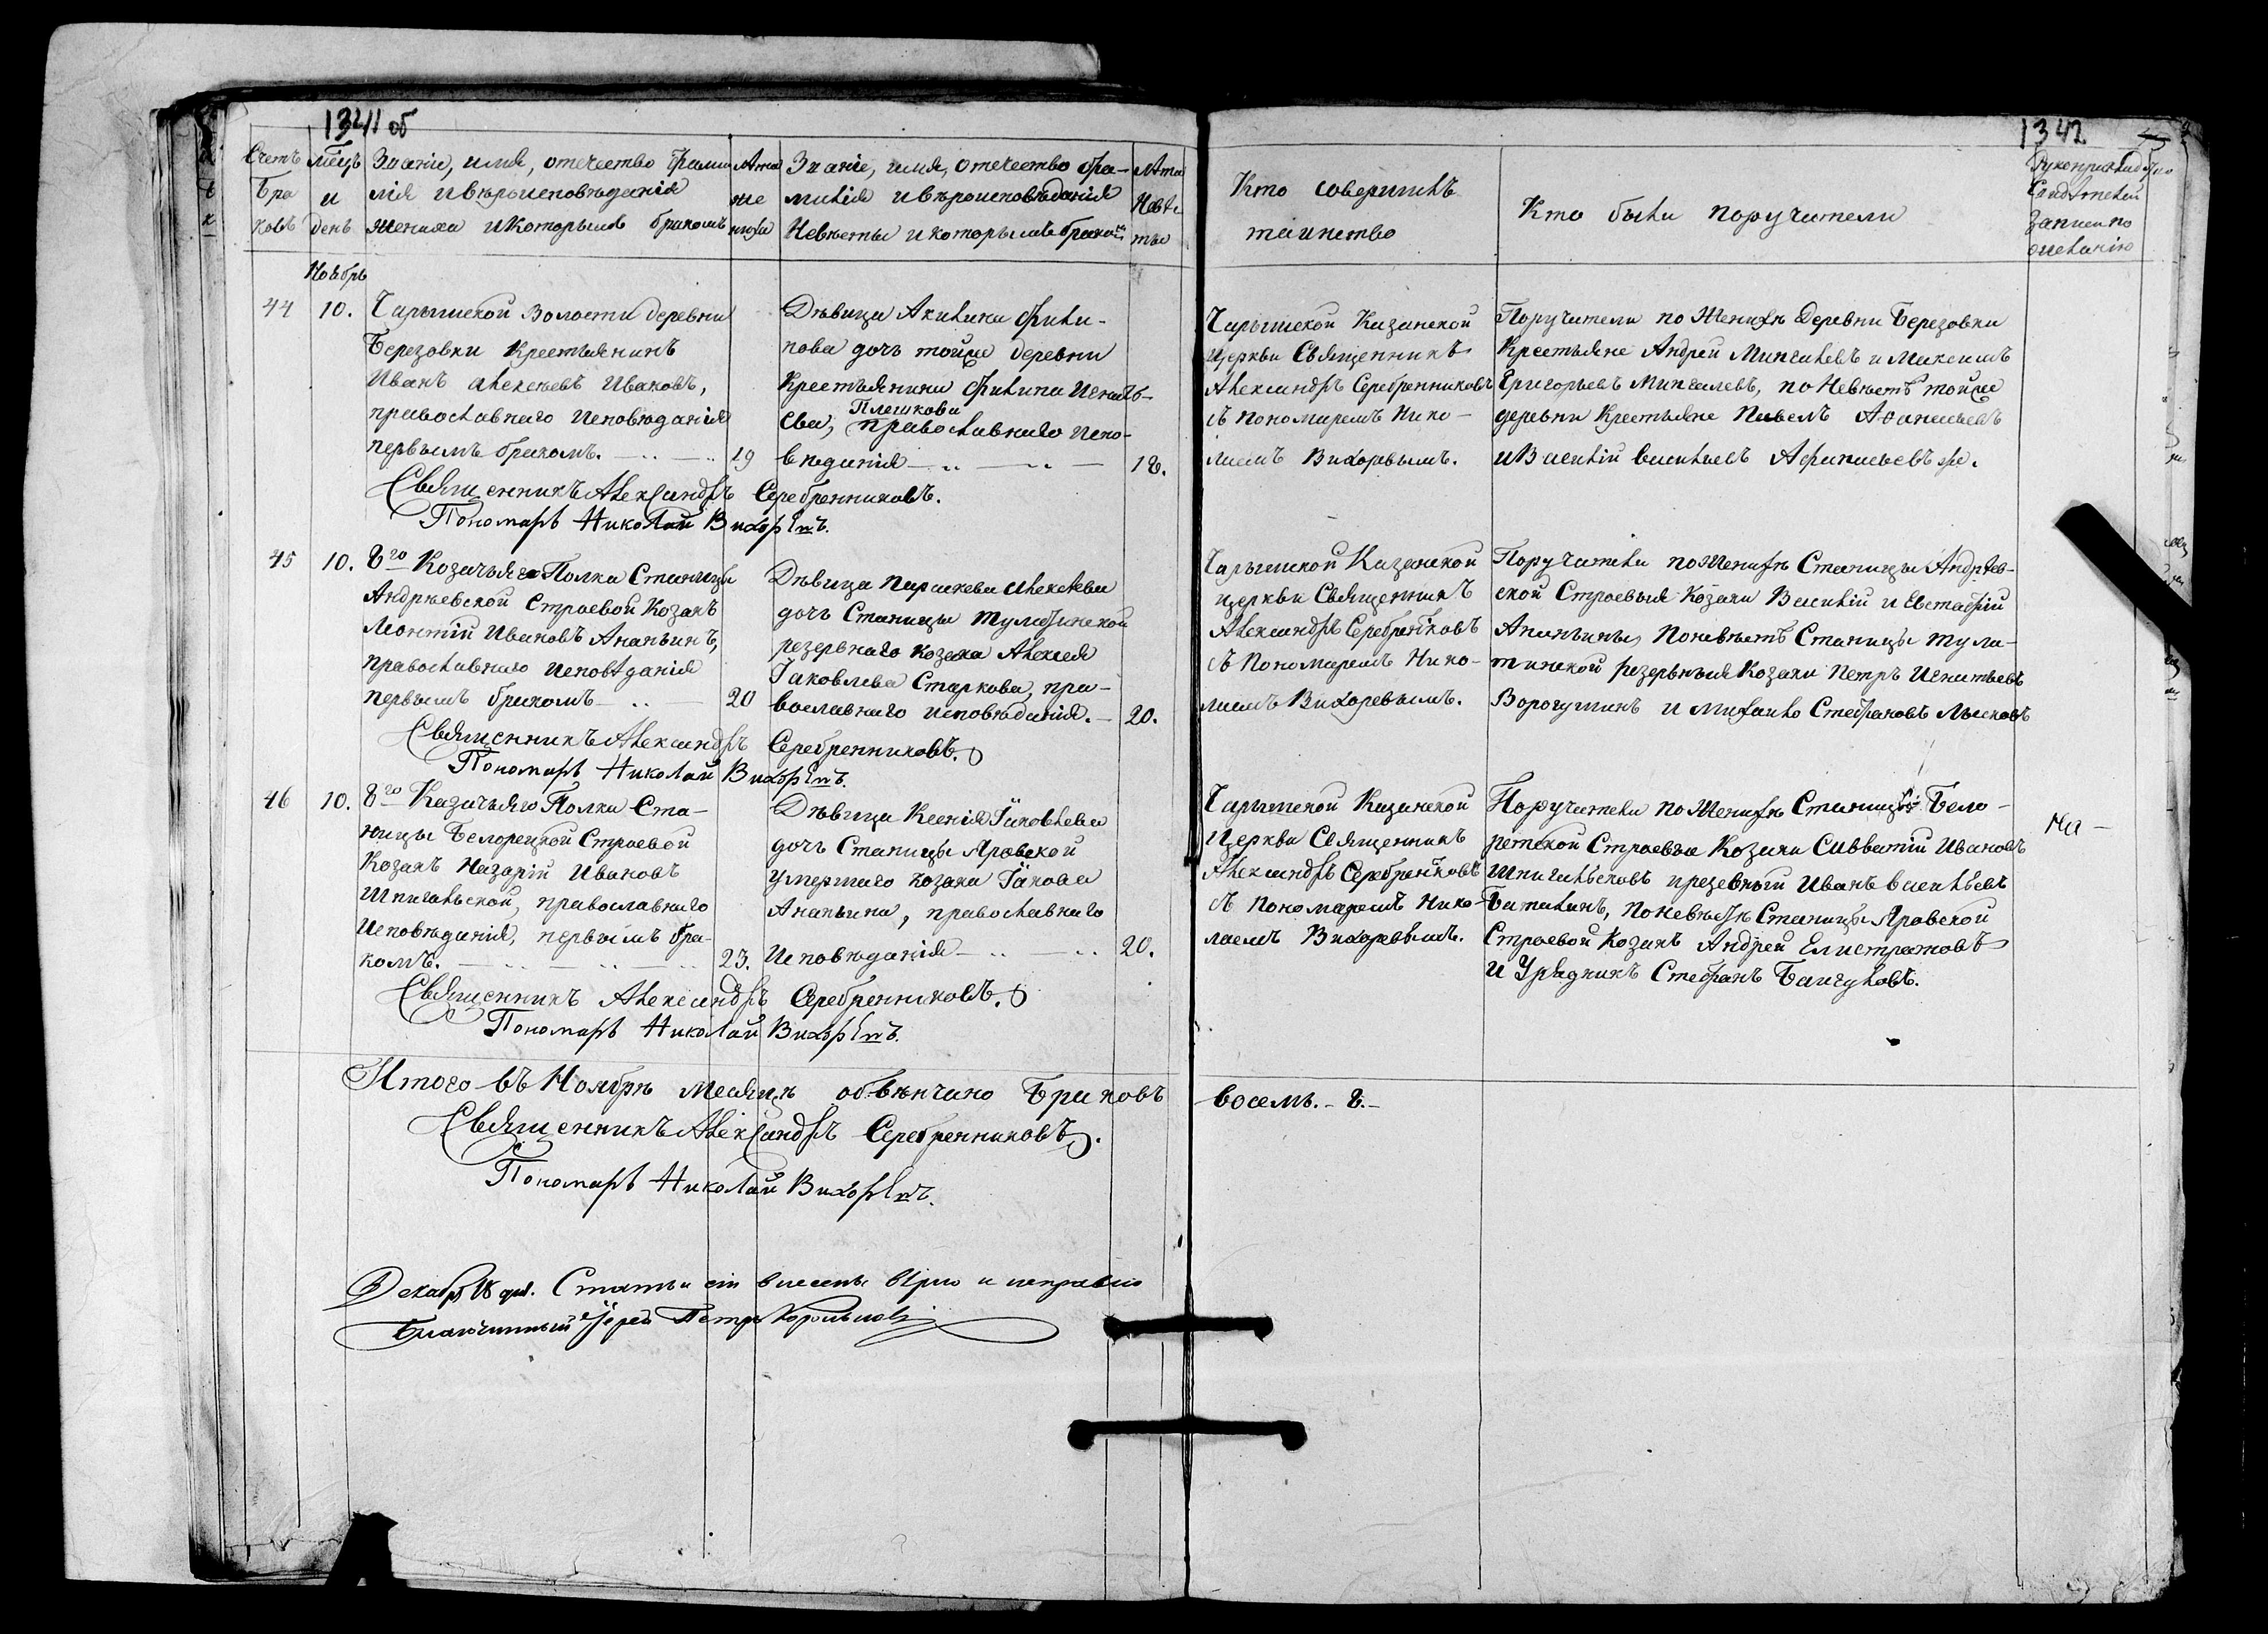 1341 об
Счетъ Бра ковъ
Мѣцъ и день
Званіе, имя, отечество фами
лія и вѣроисповѣданія
жениха и которымъ бракомъ
Лѣта же ниха
Званіе, имя, отечество фа-
милія и вѣроисповѣданія
Невѣсты и которымъ бракомъ
Лѣта Невѣ сты
Ноябрь
44 10. Чарышской Волости деревни
Березовки Крестьянинъ
Иванъ Алексѣевъ Ивановъ,
православнаго исповѣданія
первымъ бракомъ. 19
Дѣвица Акилина Фили-
пова дочь тойже деревни
Крестьянина Филипа
Плешкова
ева, православнаго испо-
вѣданія 18.
Священникъ Александръ Серебренниковъ.
Пономарь Николай Вихоревъ.
45 10. 8го Козачьяго Полка Станицы
Андрѣевской Строевой Козакъ
Леонтій Ивановъ Ананьинъ,
православнаго исповѣданія
первымъ бракомъ 20
Дѣвица Параскева Алексѣева
дочь Станицы Тулатинской
резервнаго козака Алексея
Іаковлева Старкова, пра-
вославнаго исповѣданія. 20.
Священникъ Александръ Серебренниковъ.
Пономарь Николай Вихоревъ.
46 10. 8го Казачьяго Полка Ста-
ницы Белорецкой Строевой
Козакъ Назарій Ивановъ
Шпигальской, православнаго
Исповѣданія, первымъ бра-
комъ. 23.
Дѣвица Ксенія Іаковлева
дочь Станицы Яровской
умершаго козака Іакова
Ананьина, православнаго
Исповѣданія 20.
Священникъ Александръ Серебренниковъ.
Пономарь Николай Вихоревъ.
Итого въ Ноябрѣ месяцѣ обвѣнчано Браковъ
Священникъ Александръ Серебренниковъ.
Пономарь Николай Вихоревъ.
Декабря 18 дня. Статьи сіи внесены вѣрно и исправно
Благочинный Іерей Петръ
1342
Кто совершилъ
таинство
Кто были поручители
Рукоприкладство
Свидѣтелей
записи по
желанію
Чарышской Казанской
Церкви Священникъ
Александръ Серебренниковъ
съ пономаремъ Нико-
лаемъ Вихоревымъ.
Поручители по Женихѣ Деревни Березовки
Крестьяне Андрей и Максимъ
Григорьевъ, по Невѣстѣ тойже
деревни Крестьяне Павелъ Афанасьевъ
и Василій Васильевъ
Чарышской Казанской
церкви Священникъ
Александръ Серебренниковъ
съ Пономаремъ Нико-
лаемъ Вихоревымъ.
Поручители по Женихѣ Станицы Андрѣев-
ской Строевыя Козаки Василій и Евстафій
Ананьины, по невѣстѣ Станицы Тула-
тинской резервныя Козаки Петръ Игнатьевъ
Ворогушинъ и Михаило Стефановъ Лысковъ
Чарышской Казанской
Церкви Священникъ
Александръ Серебренниковъ
съ Пономаремъ Нико-
лаемъ Вихоревымъ.
Поручители по Женихѣ Станицы Бело-
рецкой Строевые Козаки Савватій Ивановъ
Шпигальсковъ Иванъ Васильевъ
по невѣстѣ Станицы Яровской
Строевой Козакъ Андрей Елистратовъ
и Урядникъ Стефанъ
На -
восемь. - 8. -